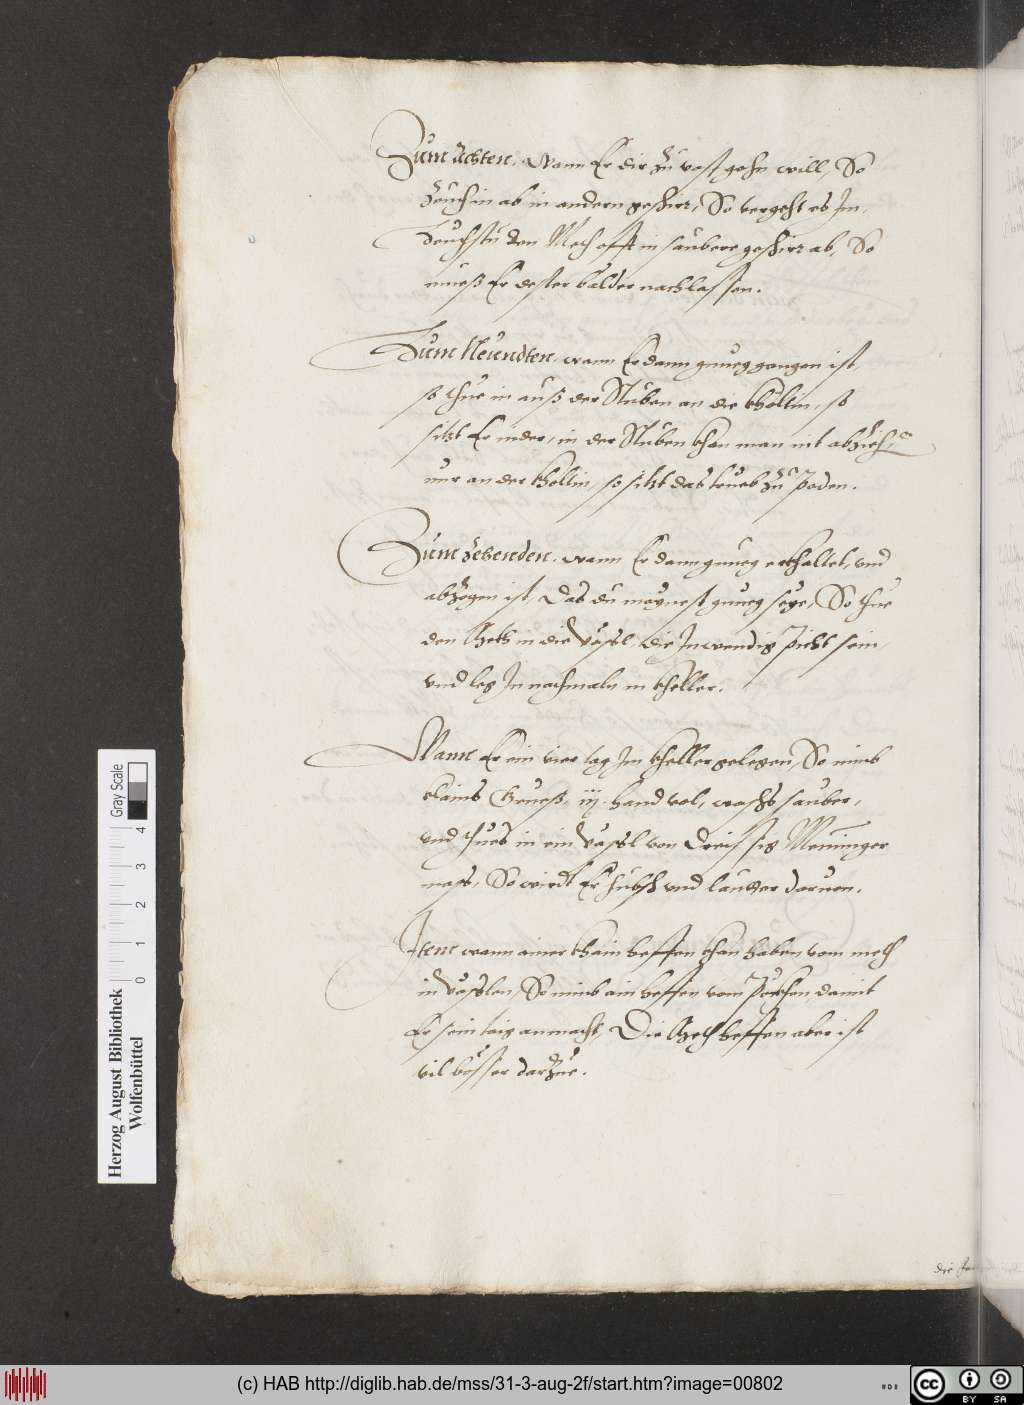 Zum Achten, Wann Er dir zu vast gehn will, So
zeuch in ab in andern geschirr, So vergeht es Im,
Zeuchstu den Meth offt in saubere geschirr ab, So
mueß Er dester balder nachlassen.
Zum Neundten, wann Er dann gnueg gangen ist,
so thue in auß der Stuben an die khöllin, so
sitzt Er nider, in der Stuben khan man nit abziehen
nur an der khöllin, so sitzt das trueb zu Poden.
Zum Zehenden, wann Er dann gnueg erkhaltet, vnd
abzogen ist, Das du maynest gnueg seye, So thue
den Meth in die vässl, die Inwendig picht sein,
vnd leg In nachmaln in kheller.
Wann Er ein vier tag Im kheller gelegen, So nimb
klains Grueß, iij. hand vol, waschs sauber,
vnd thues in ein vässl von Dreissig Meminger
mass, So wirdt Er hübsch vnd lautter daruon.
Item wann ainer khain heffen khan haben vom meth
in vässlen, So nimb ain heffen vom Peckhen damit
Er sein taig anmacht, Die Meth heffen aber ist
vil besser darzue.
die
Herzog August Bibliothek
Wolfenbüttel
0 1 2 3 4
Gray Scale
(c) HAB http://diglib.hab.de/mss/31-3-aug-2f/start.htm?image=00802
cc BY SA